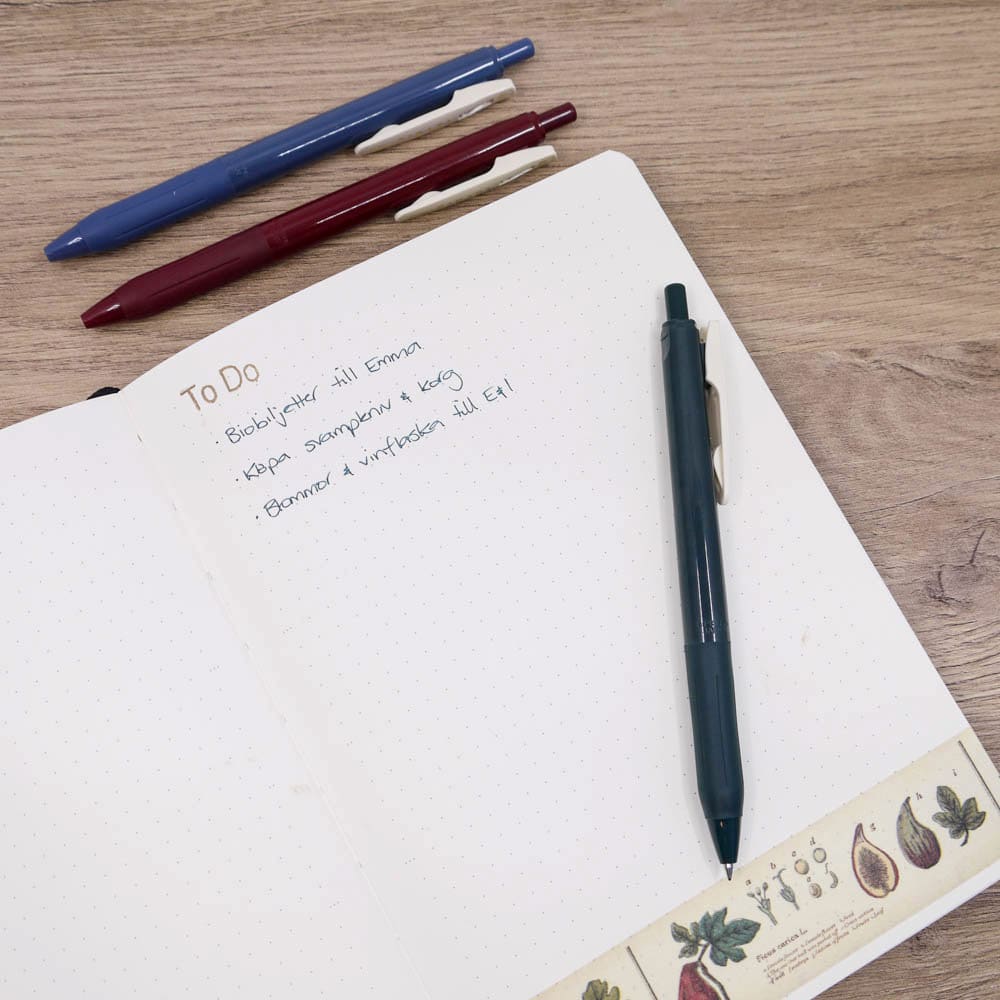 To Do
· Biobiljetter till Emma
· Köpa svampkniv & korg
· Blommor & vinflaska till E&I
a b e d
g h i
Ficus carica L.